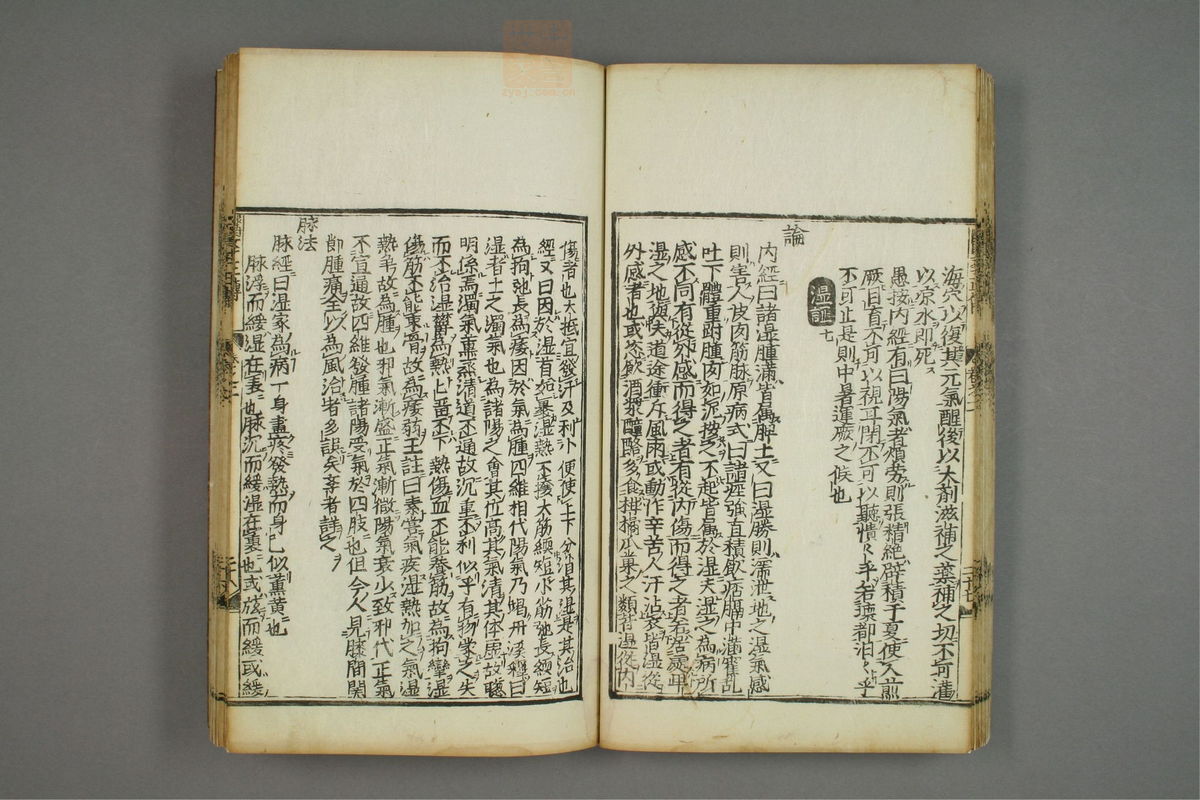 海穴以復其元氣醒後以大剤滋補之藥補之切不可灌
以凉水即死
愚按内經有曰陽氣者煩勞則張精絶辟積于夏使人煎
厥目盲不可以視耳閉不可以聽憒〻乎若壞都汩〻乎
不可止是則中暑運厥之候也
湿証 七
論
内經曰諸湿腫滿皆属脾土又曰湿勝則濡泄地之湿氣感
則害人皮肉筋脉原病式曰諸痙強直積飲痞膈中滿霍乱
吐下體重胕腫肉如泥按之不起皆属於湿夫湿之為病所
感不同有從外感而得之者有從内傷而得之者若居處卑
湿之地與夫道途衝斥風雨或動作辛苦人汗沾衣皆湿從
外感者也或恣飲酒漿醴酪多食柑橘瓜菓之類皆湿從内
傷者也大抵宜發汗及利小便使上下分消其湿是其治也
經又曰因於湿首如裹湿熱不攘大筋緛短小筋弛長緛短
為拘弛長為痿因於氣為腫四維相代陽氣乃竭丹溪釋曰
湿者土之濁氣也首為諸陽之會其位高其氣清其体虚故聰
明係焉濁氣熏蒸清道不通故沉重不利似乎有物蒙之失
而不治湿欝為熱上留不下熱傷血不能養筋故為拘攣湿
傷筋不能束骨故為痿弱王註曰素常氣疾湿熱加之氣湿
熱爭故為腫也邪氣漸盛正氣漸微陽氣衰少致邪代正氣
不宣通故四維發腫諸陽受氣於四肢也但今人見膝間関
節腫痛全以為風治者多誤矣學者詳之
脉法
脉經曰湿家為病一身盡疼發熱而身色似薫黄也
脉浮而緩湿在表也脉沉而緩湿在裏也或弦而緩或緩